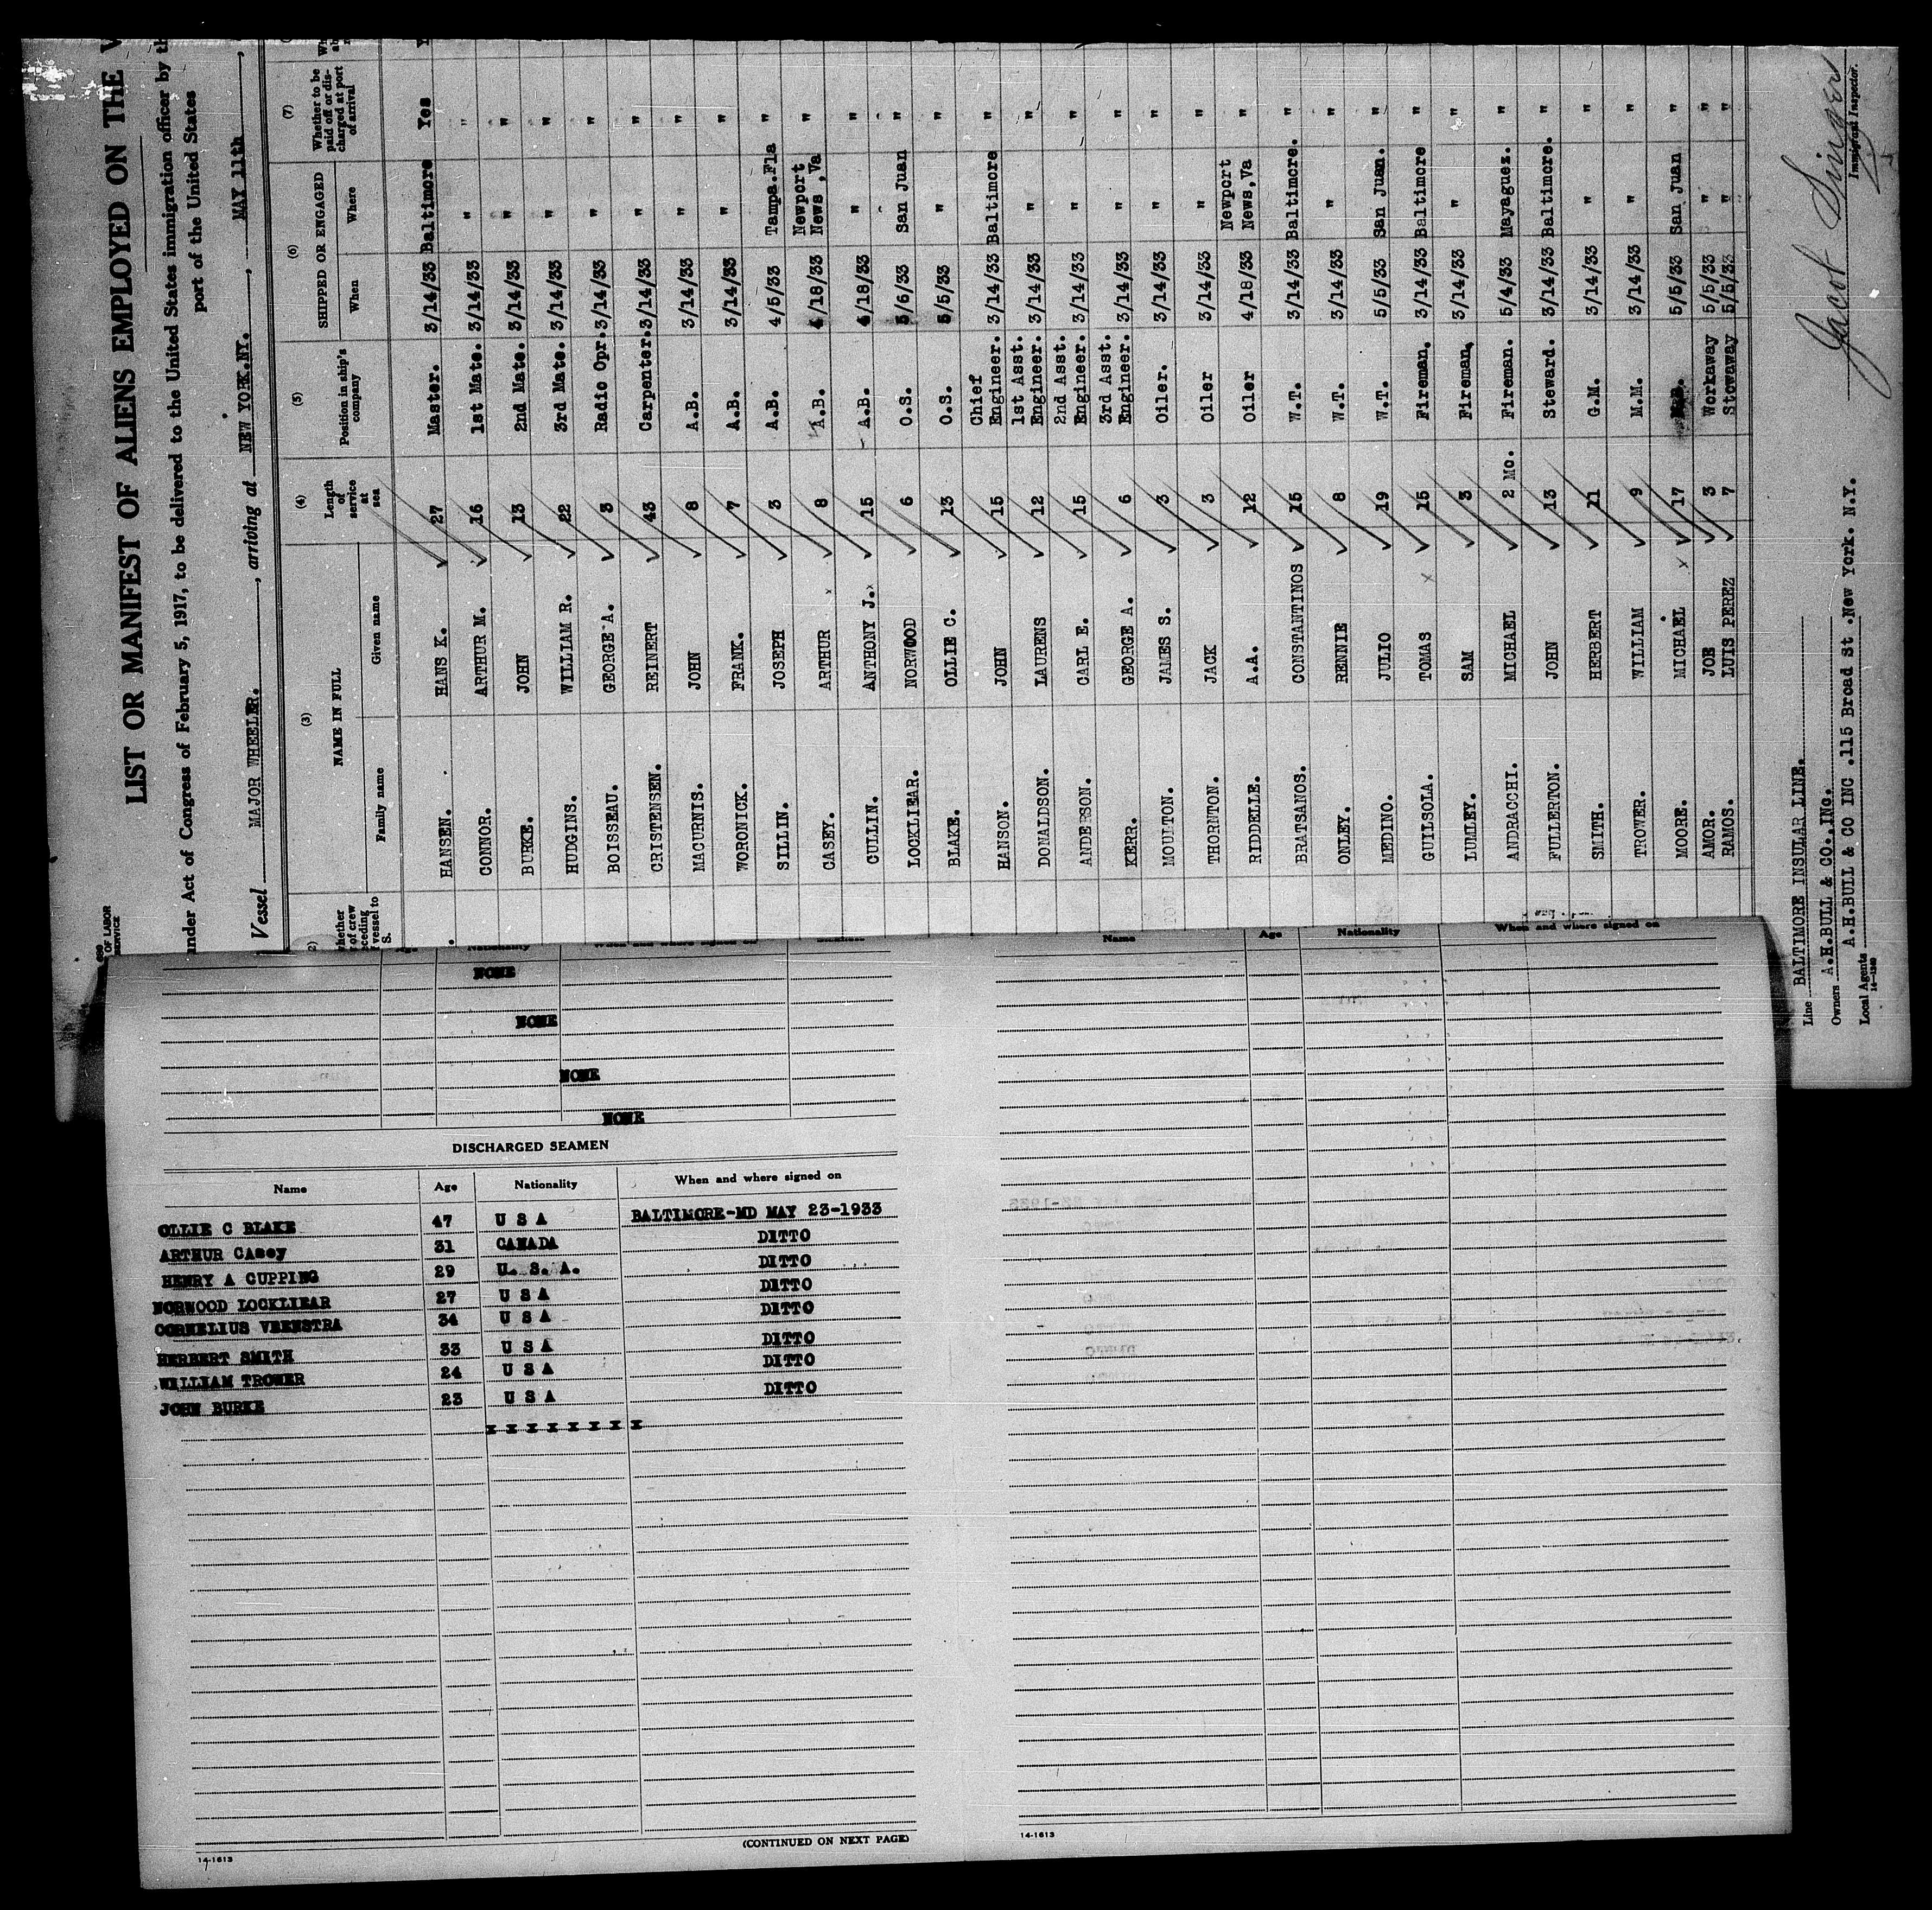 LIST OR MANIFEST OF ALIENS EMPLOYED ON THE
under Act of Congress of February 5, 1917, to be delivered to the United States immigration officer by th
port of the United States
Vessel MAJOR WHEELER. , arriving at NEW YORK.NY. , MAY 11th ,
(3) (4) (5) (6) (7)
NAME IN FULL
Family name Given name
Length of service at sea
Position in ship's company
SHIPPED OR ENGAGED
When Where
Whether to be paid off or discharged at port of arrival
HANSEN. HANS K. 27 Master. 3/14/33 Baltimore Yes
CONNOR. ARTHUR M. 16 1st Mate. 3/14/33 " "
BURKE. JOHN 13 2nd Mate. 3/14/33 " "
HUDGINS. WILLIAM R. 22 3rd Mate. 3/14/33 " "
BOISSEAU. GEORGE A. 3 Radio Opr. 3/14/33 " "
CRISTENSEN. REINERT 43 Carpenter. 3/14/33 " "
MACURNIS. JOHN 8 A.B. 3/14/33 " "
WORONICK. FRANK. 7 A.B. 3/14/33 " "
SILLIN. JOSEPH 3 A.B. 4/5/33 Tampa.Fla "
CASEY. ARTHUR 8 A.B. 4/18/33 Newport News,Va "
CULLIN. ANTHONY J. 15 A.B. 4/18/33 " "
LOCKLIEAR. NORWOOD 6 O.S. 5/6/33 San Juan "
BLAKE. OLLIE C. 13 O.S. 5/5/33 " "
HANSON. JOHN 15 Chief Engineer. 3/14/33 Baltimore "
DONALDSON. LAURENS 12 1st Asst. Engineer. 3/14/33 " "
ANDERSON. CARL E. 15 2nd Asst. Engineer. 3/14/33 " "
KERR. GEORGE A. 6 3rd Asst. Engineer. 3/14/33 " "
MOULTON. JAMES S. 3 Oiler. 3/14/33 " "
THORNTON. JACK 3 Oiler 3/14/33 " "
RIDDELLE. A.A. 12 Oiler 4/18/33 Newport News,Va "
BRATSANOS. CONSTANTINOS 15 W.T. 3/14/33 Baltimore. "
ONLEY. RENNIE 8 W.T. 3/14/33 " "
MEDINO. JULIO 19 W.T. 5/5/33 San Juan. "
GUILSOLA. TOMAS 15 Fireman. 3/14/33 Baltimore "
LUMLEY. SAM 3 Fireman. 3/14/33 " "
ANDRACCHI. MICHAEL 2 Mo. Fireman. 5/4/33 Mayaguez. "
FULLERTON. JOHN 13 Steward. 3/14/33 Baltimore. "
SMITH. HERBERT 11 G.M. 3/14/33 " "
TROWER. WILLIAM 9 M.M. 3/14/33 " "
MOORE. MICHAEL 17 5/5/33 San Juan "
AMOR. JOE 3 Workaway 5/5/33 " "
RAMOS. LUIS PEREZ 7 Stowaway 5/5/33 " "
Line BALTIMORE INSULAR LINE.
Owners A.H.BULL & CO.,INC.
Local Agents A.H.BULL & CO INC .115 Broad St .New York. N.Y.
14-1240
Jacob Singer
Immigrant Inspector.
NONE
NONE
NONE
NONE
DISCHARGED SEAMEN
Name Age Nationality When and where signed on
OLLIE C BLAKE 47 U S A BALTIMORE-MD MAY 23-1933
ARTHUR CAsey 31 CANADA DITTO
HENRY A CUPPING 29 U. S. A. DITTO
NORWOOD LOCKLIEAR 27 U S A DITTO
CORNELIUS VEENSTRA 34 U S A DITTO
HERBERT SMITH 33 U S A DITTO
WILLIAM TROWER 24 U S A DITTO
JOHN BURKE 23 U S A DITTO
x x x x x x x x
(CONTINUED ON NEXT PAGE)
14-1613
Name Age Nationality When and where signed on
14-1613